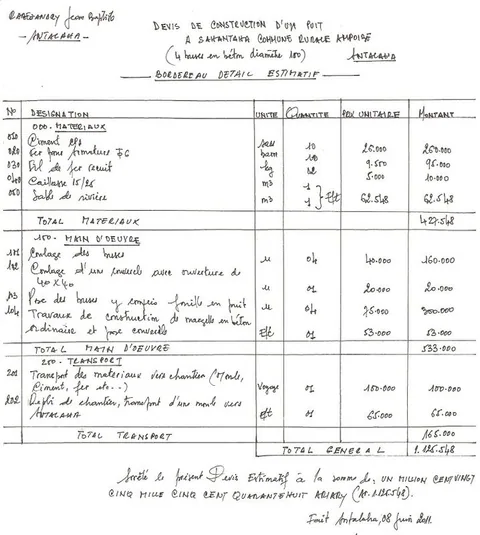 RABESANDRY Jean Baptiste
- ANTALAHA -
DEVIS DE CONSTRUCTION D'UN PUIT
A SAHANTAHA COMMUNE RURALE AMPOHE
(4 buses en béton diamètre 100) ANTALAHA
BORDEREAU DETAIL ESTIMATIF
No DESIGNATION UNITE QUANTITE PRIX UNITAIRE MONTANT
000. MATERIAUX
010 Ciment CPA sacs 10 26.000 260.000
020 Fer pour armature barre 10 9.500 95.000
030 Fil de fer recuit kg 02 5.000 10.000
040 Caillasse 15/25 m3 1
050 Sable de rivière m3 1 Fft 62.548 62.548
TOTAL MATERIAUX 427.548
100. MAIN D'OEUVRE
101 Coulage des buses u 04 40.000 160.000
102 Coulage d'un couvercle avec ouverture de
40 x 40 u 01 20.000 20.000
103 Pose des buses y compris fouille en puit u 04 75.000 300.000
104 Travaux de construction de margelle en béton
ordinaire et pose couvercle Fft 01 53.000 53.000
TOTAL MAIN D'OEUVRE 533.000
200. TRANSPORT
201 Transport des materiaux vers chantier (Moule,
Ciment, fer etc..) Voyage 01 100.000 100.000
202 Repli de chantier, transport d'une moule vers
ANTALAHA Fft 01 65.000 65.000
TOTAL TRANSPORT 165.000
TOTAL GENERAL 1.125.548
Arrêté le présent Devis Estimatif à la somme de: UN MILLION CENT VINGT
CINQ MILLE CINQ CENT QUARANTE HUIT ARIARY (Ar. 1.125.548).
Fait Antalaha, 08 juin 2011